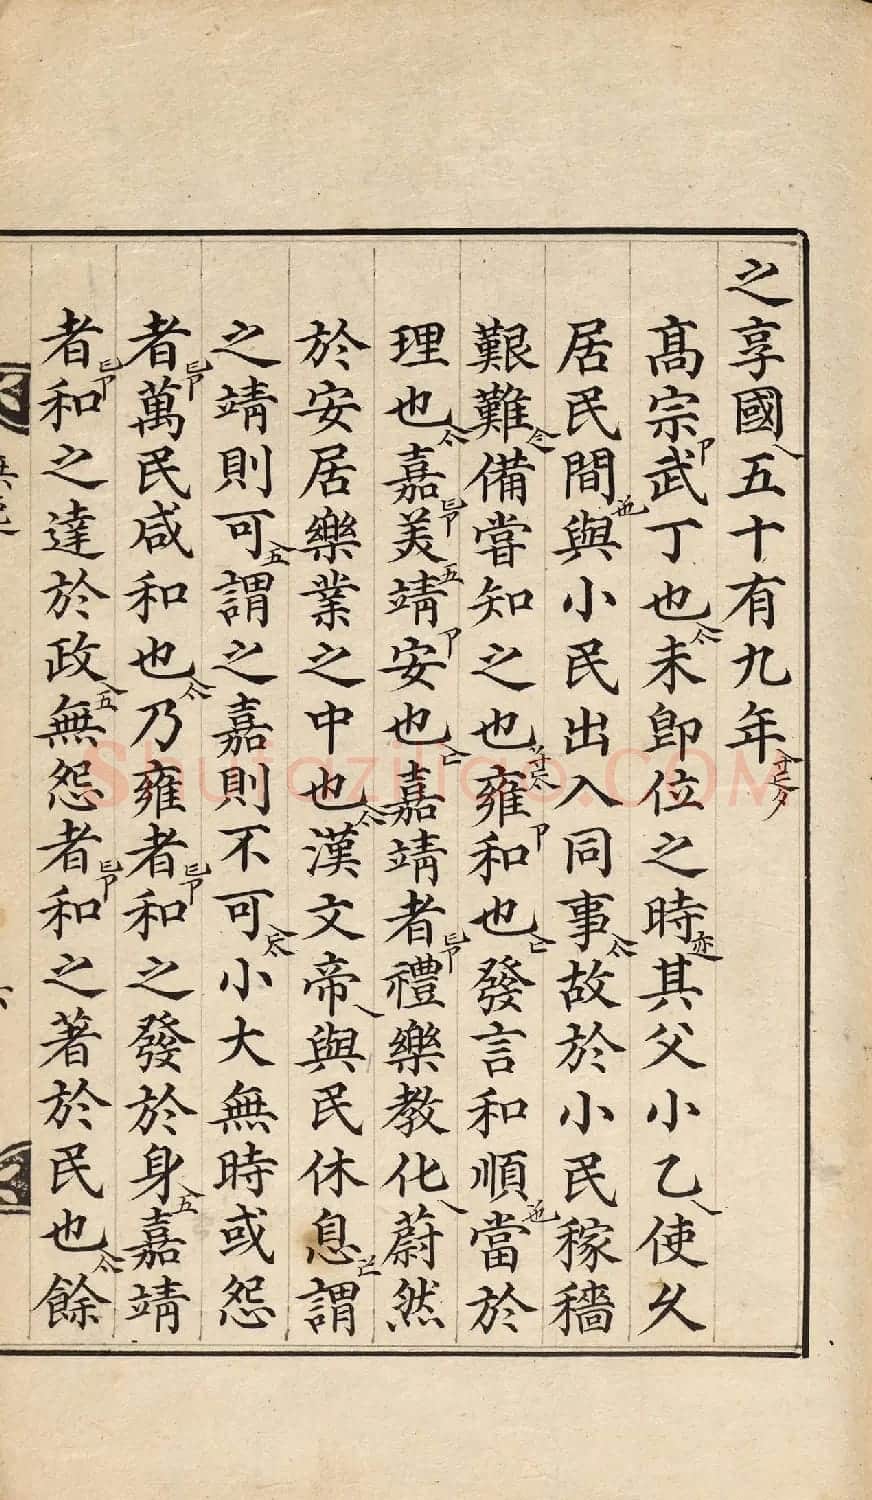 之享國五十有九年
高宗武丁也未卽位之時其父小乙使久
居民間與小民出入同事故於小民稼穡
艱難備嘗知之也雍和也發言和順當於
理也嘉美靖安也嘉靖者禮樂教化蔚然
於安居樂業之中也漢文帝與民休息謂
之靖則可謂之嘉則不可小大無時或怨
者萬民咸和也乃雍者和之發於身嘉靖
者和之達於政無怨者和之著於民也餘
Shufaziliao.COM